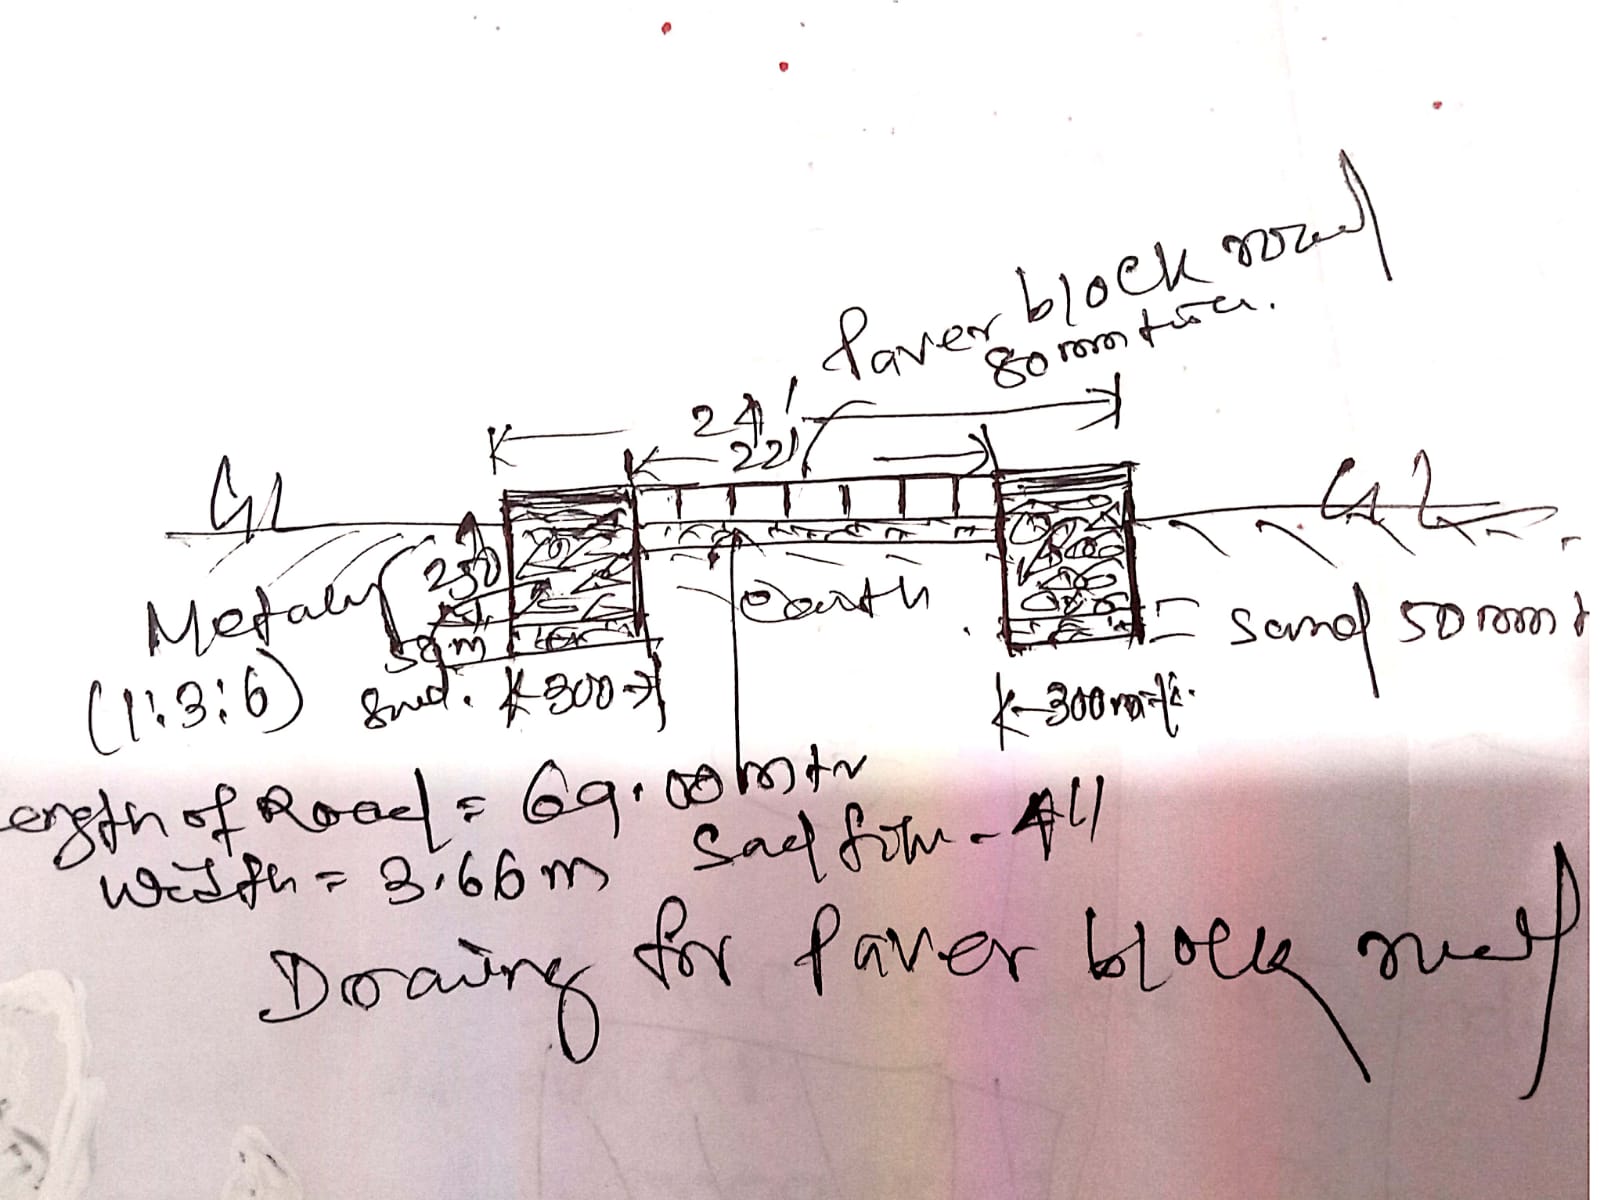 Paver block road
80 mm thick.
24'
22'
GL
GL
250
Metaling
(1:3:6)
50 m
Sand.
earth
= sand 50 mm t
K-300->
K-300m
ength of Road = 69.00 mtr
Width = 3.66 m
- 4"
Drawing for Paver block road